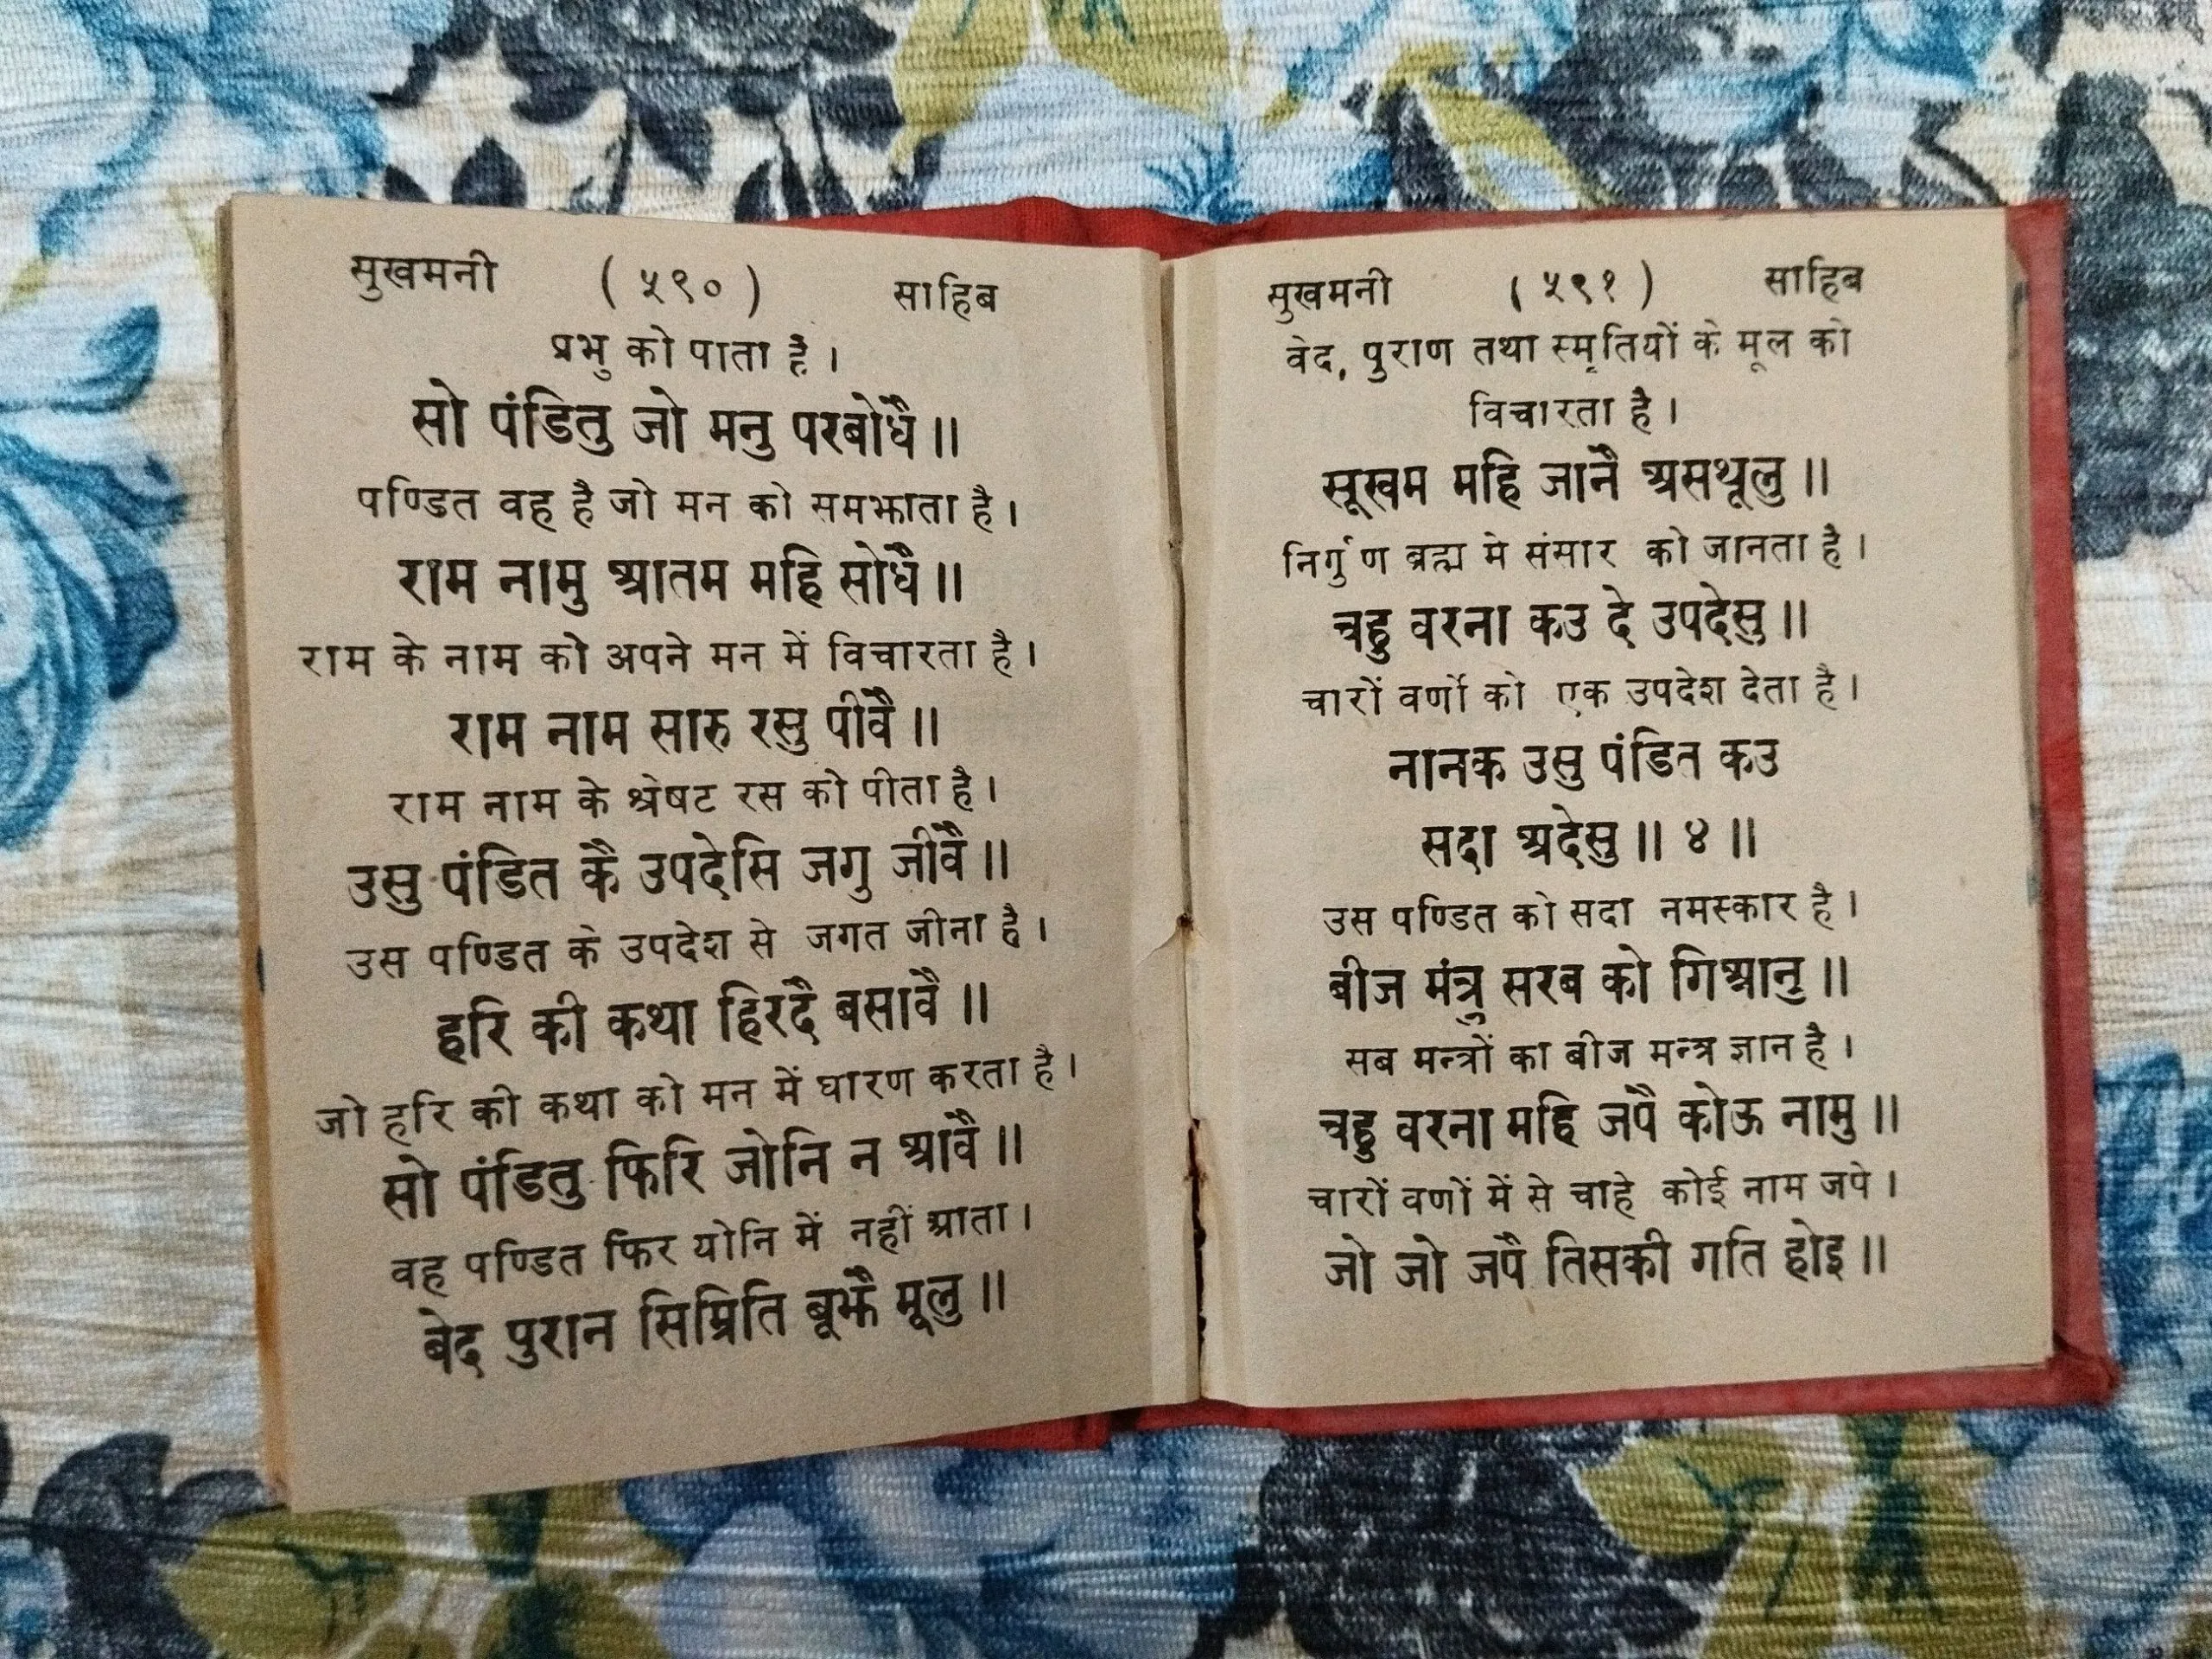 सुखमनी ( ५९० ) साहिब
प्रभु को पाता है ।
सो पंडितु जो मनु परबोधै ॥
पण्डित वह है जो मन को समझाता है ।
राम नामु आतम महि सोधै ॥
राम के नाम को अपने मन में विचारता है ।
राम नाम सारु रसु पीवै ॥
राम नाम के श्रेषट रस को पीता है ।
उसु पंडित कै उपदेसि जगु जीवै ॥
उस पण्डित के उपदेश से जगत जीना है ।
हरि की कथा हिरदै बसावै ॥
जो हरि की कथा को मन में धारण करता है ।
सो पंडितु फिरि जोनि न आवै ॥
वह पण्डित फिर योनि में नहीं आता ।
बेद पुरान सिम्रिति बूझै मूलु ॥
सुखमनी ( ५९१ ) साहिब
वेद, पुराण तथा स्मृतियों के मूल को
विचारता है ।
सूखम महि जानै असथूलु ॥
निर्गुण ब्रह्म मे संसार को जानता है ।
चहु वरना कउ दे उपदेसु ॥
चारों वर्णो को एक उपदेश देता है ।
नानक उसु पंडित कउ
सदा अदेसु ॥ ४ ॥
उस पण्डित को सदा नमस्कार है ।
बीज मंत्रु सरब को गिआनु ॥
सब मन्त्रों का बीज मन्त्र ज्ञान है ।
चहु वरना महि जपै कोऊ नामु ॥
चारों वणों में से चाहे कोई नाम जपे ।
जो जो जपै तिसकी गति होइ ॥